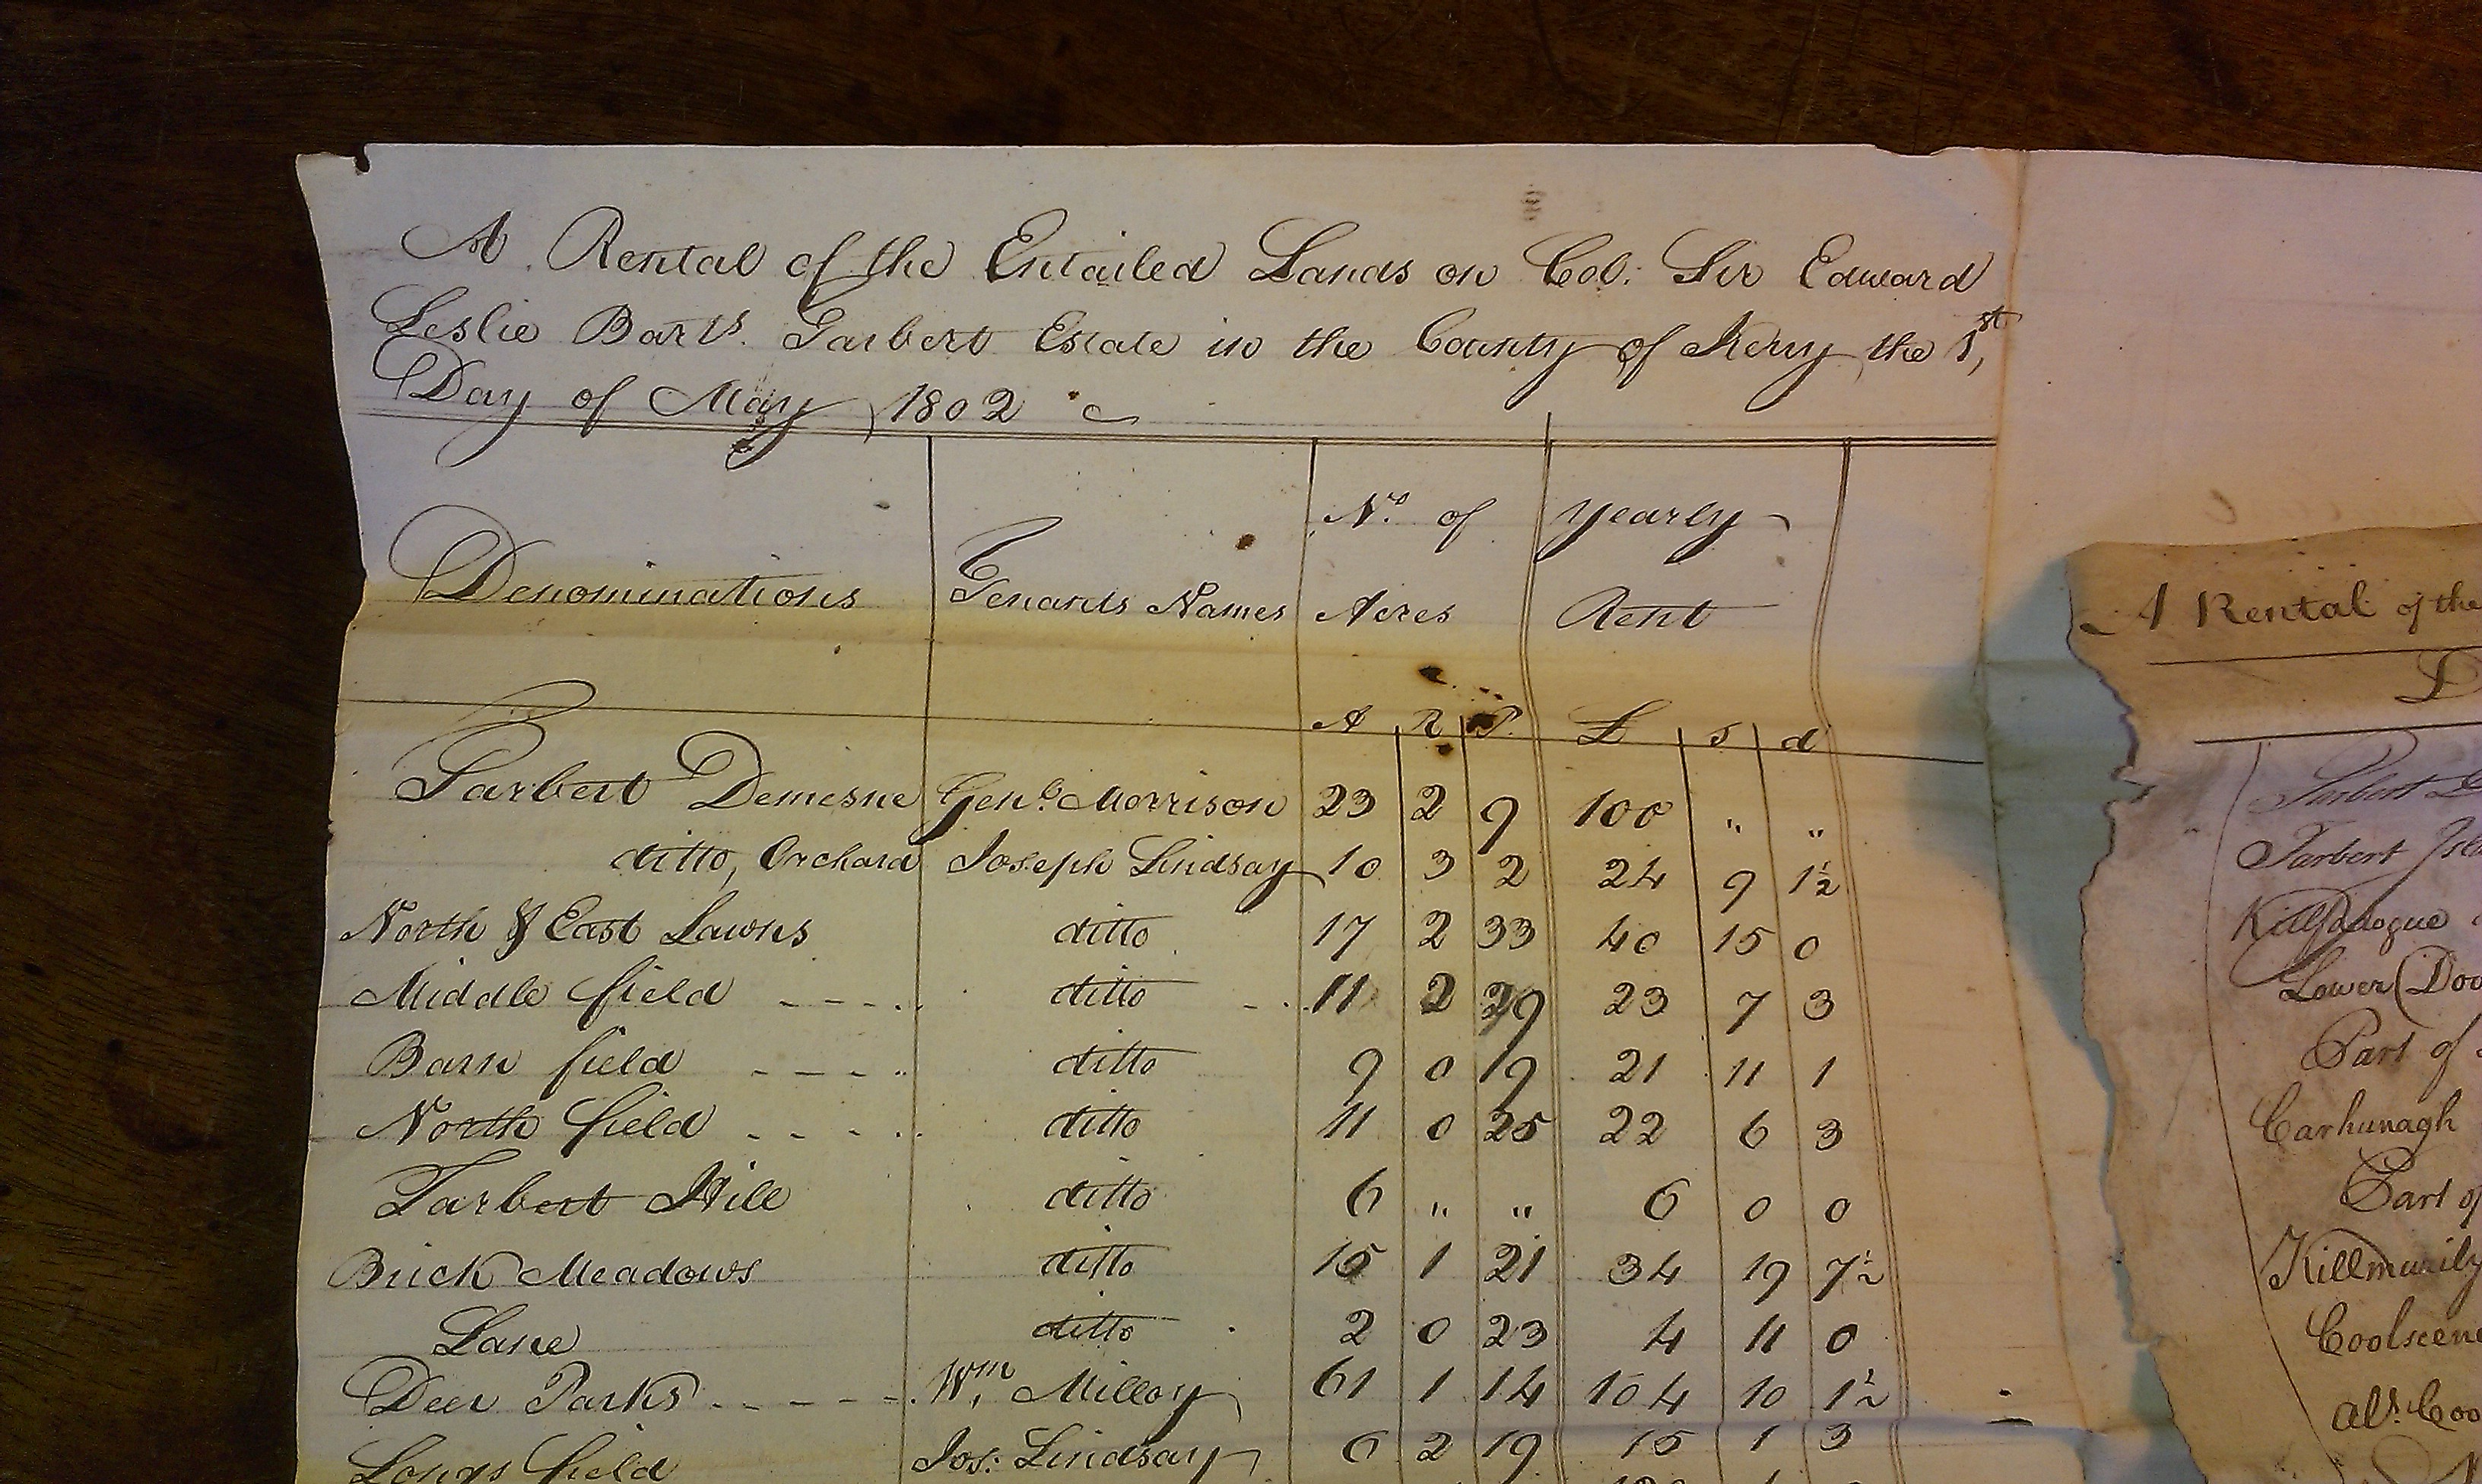 A Rental of the Entailed Lands on Col: Sir Edward
Leslie Barts. Tarbert Estate in the County of Kerry the 1st,
Day of May 1802
Denominations Tenants Names No. of Acres Yearly Rent
A R P. £ s d
Tarbert Demesne Genl. Morrison 23 2 9 100 " "
ditto, Orchard Joseph Lindsay 10 3 2 24 9 1½
North & East Lawns ditto 17 2 33 40 15 0
Middle field ---- ditto 11 2 29 23 7 3
Barn field ---- ditto 9 0 19 21 11 1
North field ---- ditto 11 0 25 22 6 3
Tarbert Hill ditto 6 " " 6 0 0
Brick Meadows ditto 15 1 21 34 19 7½
Lane ditto 2 0 23 4 11 0
Deer Parks ----- Wm. Milloy 61 1 14 104 10 1½
Longs field Jos: Lindsay 6 2 19 15 1 3
A Rental of the
D
Tarbert D
Tarbert Isl
Lower Doo
Part of
Carhunagh
Part of
Killmurily
Coolsceen
als. Coo